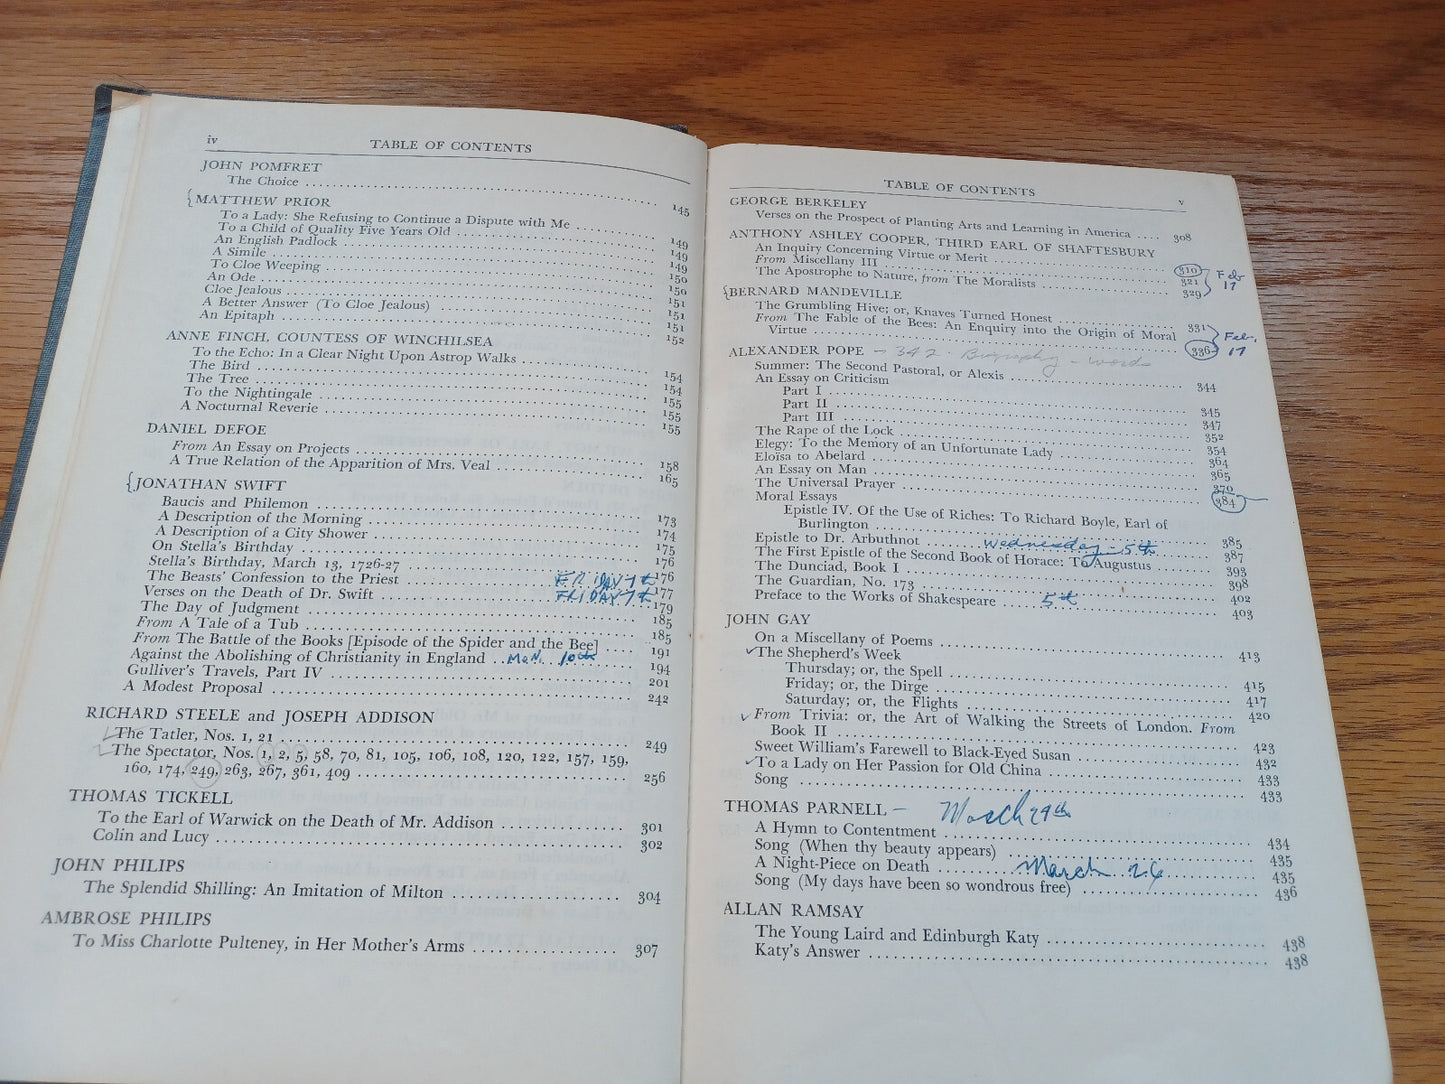 iv TABLE OF CONTENTS
JOHN POMFRET
The Choice 145
{MATTHEW PRIOR
To a Lady: She Refusing to Continue a Dispute with Me 149
To a Child of Quality Five Years Old 149
An English Padlock 149
A Simile 150
To Cloe Weeping 150
An Ode 151
Cloe Jealous 151
A Better Answer (To Cloe Jealous) 151
An Epitaph 152
ANNE FINCH, COUNTESS OF WINCHILSEA
To the Echo: In a Clear Night Upon Astrop Walks 154
The Bird 154
The Tree 155
To the Nightingale 155
A Nocturnal Reverie 155
DANIEL DEFOE
From An Essay on Projects 158
A True Relation of the Apparition of Mrs. Veal 165
{JONATHAN SWIFT
Baucis and Philemon 173
A Description of the Morning 174
A Description of a City Shower 175
On Stella's Birthday 176
Stella's Birthday, March 13, 1726-27 176
The Beasts' Confession to the Priest FRIDAY 7th 177
Verses on the Death of Dr. Swift FRIDAY 7th 179
The Day of Judgment 185
From A Tale of a Tub 185
From The Battle of the Books [Episode of the Spider and the Bee] 191
Against the Abolishing of Christianity in England Mon. 10th 194
Gulliver's Travels, Part IV 201
A Modest Proposal 242
RICHARD STEELE and JOSEPH ADDISON
The Tatler, Nos. 1, 21 249
The Spectator, Nos. 1, 2, 5, 58, 70, 81, 105, 106, 108, 120, 122, 157, 159,
160, 174, 249, 263, 267, 361, 409 256
THOMAS TICKELL
To the Earl of Warwick on the Death of Mr. Addison 301
Colin and Lucy 302
JOHN PHILIPS
The Splendid Shilling: An Imitation of Milton 304
AMBROSE PHILIPS
To Miss Charlotte Pulteney, in Her Mother's Arms 307
TABLE OF CONTENTS v
GEORGE BERKELEY
Verses on the Prospect of Planting Arts and Learning in America 308
ANTHONY ASHLEY COOPER, THIRD EARL OF SHAFTESBURY
An Inquiry Concerning Virtue or Merit 310
From Miscellany III 321 Feb
The Apostrophe to Nature, from The Moralists 329 17
{BERNARD MANDEVILLE
The Grumbling Hive; or, Knaves Turned Honest 331
From The Fable of the Bees: An Enquiry into the Origin of Moral Feb.
Virtue 336 17
ALEXANDER POPE – 342 - Biography - words
Summer: The Second Pastoral, or Alexis 344
An Essay on Criticism
Part I 345
Part II 347
Part III 352
The Rape of the Lock 354
Elegy: To the Memory of an Unfortunate Lady 364
Eloïsa to Abelard 365
An Essay on Man 370
The Universal Prayer 384
Moral Essays
Epistle IV. Of the Use of Riches: To Richard Boyle, Earl of
Burlington 385
Epistle to Dr. Arbuthnot Wednesday - 5th 387
The First Epistle of the Second Book of Horace: To Augustus 393
The Dunciad, Book I 398
The Guardian, No. 173 402
Preface to the Works of Shakespeare 5th 403
JOHN GAY
On a Miscellany of Poems 413
The Shepherd's Week
Thursday; or, the Spell 415
Friday; or, the Dirge 417
Saturday; or, the Flights 420
From Trivia: or, the Art of Walking the Streets of London. From
Book II 423
Sweet William's Farewell to Black-Eyed Susan 432
To a Lady on Her Passion for Old China 433
Song 433
THOMAS PARNELL – March 29th
A Hymn to Contentment 434
Song (When thy beauty appears) 435
A Night-Piece on Death March 26 435
Song (My days have been so wondrous free) 436
ALLAN RAMSAY
The Young Laird and Edinburgh Katy 438
Katy's Answer 438